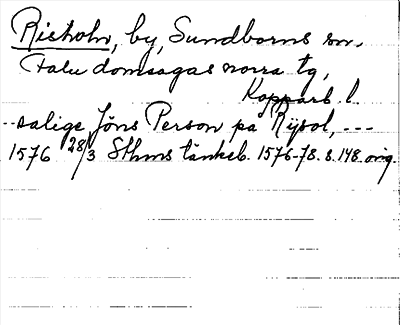 Risholn, by, Sundborns sn.
Falu domsagas norra tg,
Kopparb. l.
--salige Jöns Person på Rijsol, ---
1576 28/3 Sthms tänkeb. 1576-78. s. 148. orig.